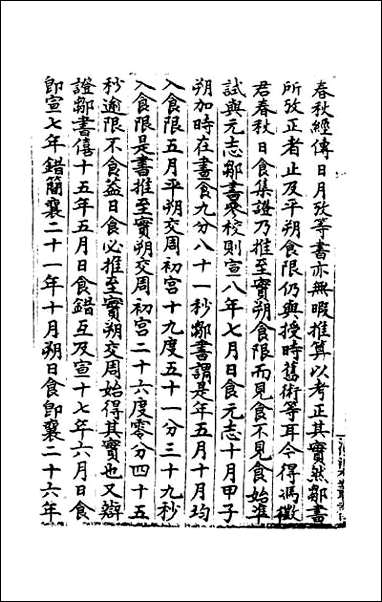 春秋經傳日月攷等書亦無暇推算以考正其實然鄒書
所攷正者止及平朔食限仍與授時舊術等耳今得馮徵
君春秋日食集證乃推至實朔食限而見食不見食始準
試與元志鄒書參校則宣八年七月日食元志十月甲子
朔加時在晝食九分八十一秒鄒書謂是年五月十月均
入食限五月平朔交周初宮十九度五十一分三十九秒
入食限是書推至實朔交周初宮二十六度零分四十五
秒逾限不食葢日食必推至實朔交周始得其實也又辯
證鄒書僖十五年五月日食錯互及宣十七年六月日食
卽宣七年錯簡襄二十一年十月朔日食卽襄二十六年